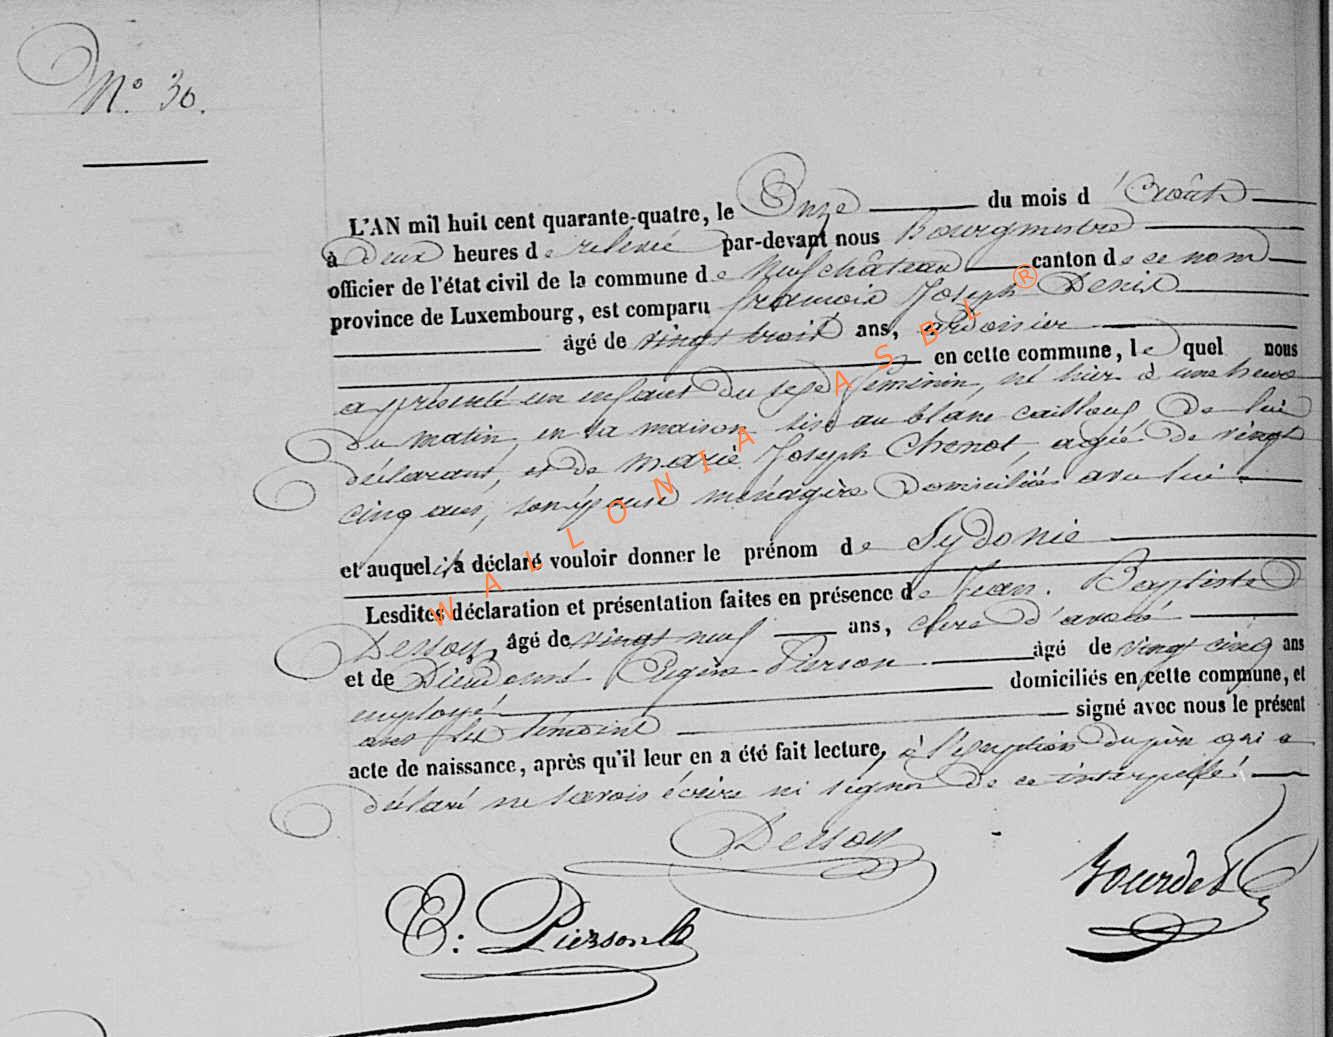 N.° 30.
L'AN mil huit cent quarante-quatre, le Onze du mois d'août
à deux heures de relevée par-devant nous Bourgmestre
officier de l'état civil de la commune de Neufchâteau canton de ce nom
province de Luxembourg, est comparu françois Joseph Denis
âgé de vingt trois ans, ardoisier
en cette commune, lequel nous
a présenté un enfant du sexe féminin, né hier à une heure
du matin, en sa maison sise au blanc caillou, de lui
déclarant, et de marie Joseph Chenot, agée de vingt
cinq ans, son épouse ménagère domiciliée avec lui
et auquel il a déclaré vouloir donner le prénom de Sydonie
Lesdites déclaration et présentation faites en présence de Jean Baptiste
âgé de vingt neuf ans, clerc d'avoué
et de Dieudonné Eugène Pierson âgé de vingt cinq ans
employé domiciliés en cette commune, et
ont les témoins signé avec nous le présent
acte de naissance, après qu'il leur en a été fait lecture, à l'exception du père qui a
déclaré ne savoir écrire ni signer de ce interpellé.
E: Pierson
Bourdet
WALLONIA ASBL ®